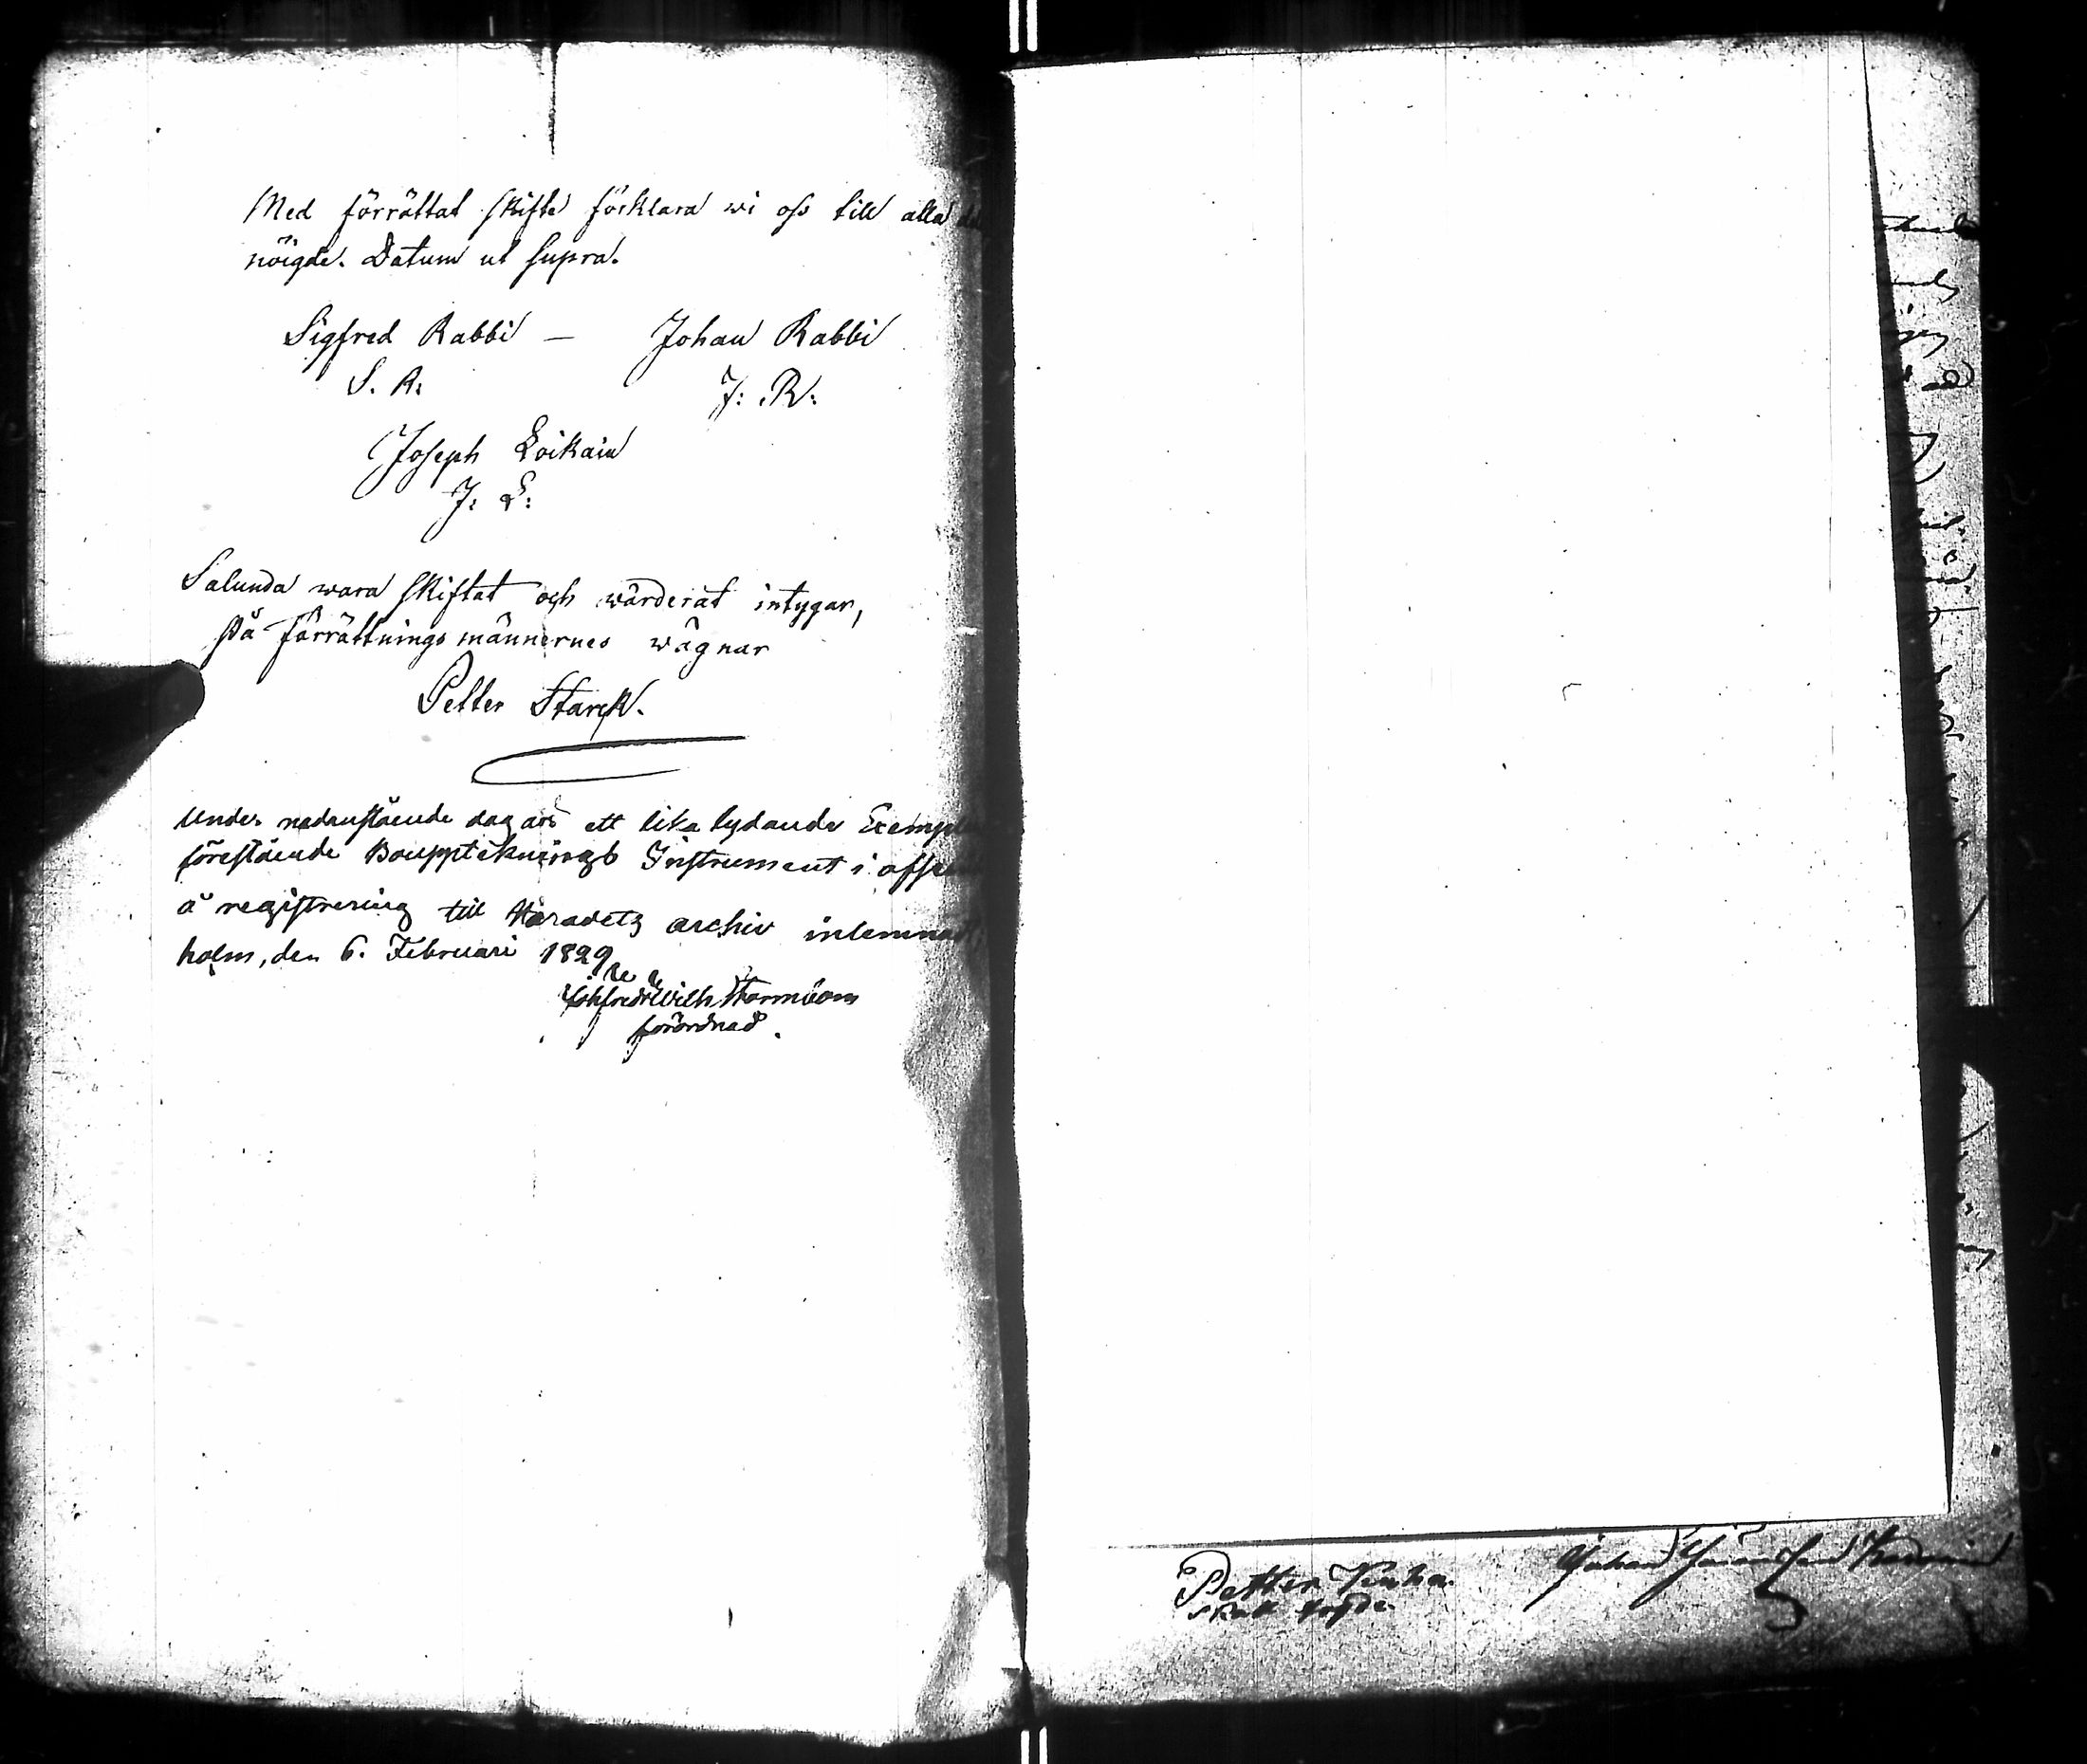 Med förrättat skifte förklara wi oss till alla
nöigde. Datum ut supra.
Sigfred Rabbi — Johan Rabbi
S. R: J: R:
Joseph Loikain
J: L:
Salunda wara skiftat och wärderat intygar,
På Förrättnings männernes wägnar
Petter Starck.
Under nedanstående dag ett lika lydande
förestående Bouppteknings Instrument i
å registrering till Häradets archiv
holm, den 6. Februari 1829
förordnad.
Petter Kuha
Johan